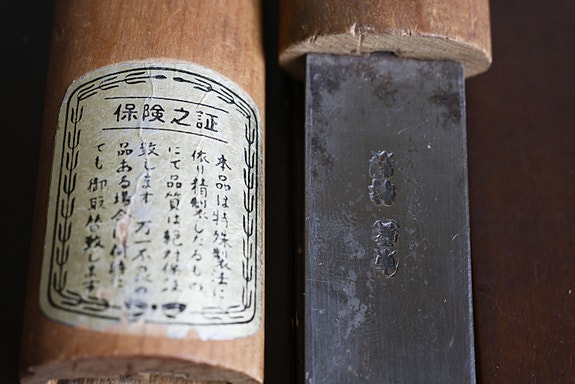 保険之証
本品は特殊製法に
依り精製したるもの
にて品質は絶対保証
致します 万一不良の
品ある場合は何時に
ても御取替致します